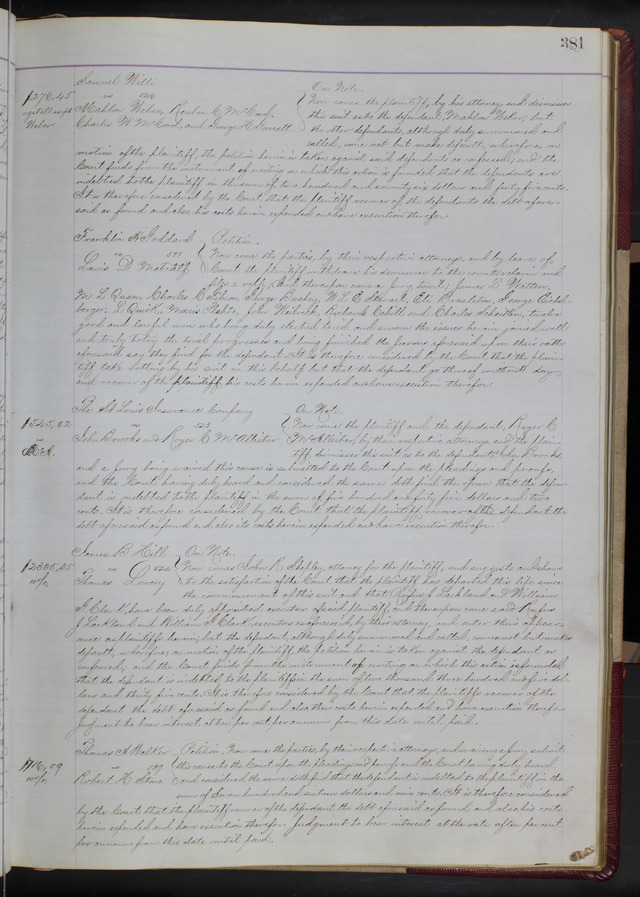 381
Samuel Willi
$276.45 vs On Note.
Mahlon Weber, Reuben C. McCord, Now comes the plaintiff, by his attorney, and dismisses
Charles W. McCord, and George H. Garrett this suit as to the defendant, Mahlon Weber, but
Weber the other defendants, although duly summoned and
called, come not but make default, wherefore, on
motion of the plaintiff, the petition herein is taken against said defendants as confessed; and the
Court finds from the instrument of writing on which this action is founded that the defendants are
indebted to the plaintiff in the sum of two hundred and seventy six dollars and forty five cents.
It is therefore considered by the Court that the plaintiff recover of the defendants the debt afore-
said as found and also his costs herein expended and have execution therefor.
Franklin H. Goddard Petition.
vs 501 Now come the parties, by their respective attorneys, and by leave of
Lewis D. Court the plaintiff withdraws his demurrer to the counterclaim and
files a reply; and thereupon came a jury, to wit: James S. Watson,
M. L. Charles C. George Bushey, W. L. E. Stewart, Eli George
berger, L. Quirk, John Richard Cahill and Charles twelve
good and lawful men who being duly elected, tried and sworn the issues herein joined well
and truly to try the trial progresses and being finished the jurors aforesaid upon their oaths
aforesaid say they find for the defendant. It is therefore considered by the Court that the plain-
tiff take nothing by his suit in this behalf but that the defendant go thereof without day
and recover of the plaintiff, his costs herein expended and have execution therefor.
The St Louis Insurance Company On Note.
$545.02 vs 523 Now come the plaintiff and the defendant, Roger C.
John and Roger C. McAllister McAllister, by their respective attorneys and the plain-
tiff dismisses this suit as to the defendant John
and a jury being waived this cause is submitted to the Court upon the pleadings and proofs,
and the Court having duly heard and considered the same doth find therefrom that the defen-
dant is indebted to the Plaintiff in the sum of five hundred and forty five dollars and two
cents. It is therefore considered by the Court that the plaintiff recover of the defendant the
debt aforesaid as found and also its costs herein expended and have execution therefor.
James B. Hill On Note.
$2305.35 vs 526 Now comes John R. Shepley, attorney for the plaintiff, and suggests and shows
10% Thomas Lowry to the satisfaction of the Court that the plaintiff has departed this life since
the commencement of this suit and that Rufus J. Lackland and William
G. Clark have been duly appointed executors of said plaintiff, and thereupon came said Rufus
J. Lackland and William G. Clark executors as aforesaid, by their attorney, and enter their appear-
ance as plaintiffs herein; but the defendant, although duly summoned and called, comes not but makes
default; wherefore, on motion of the plaintiff, the petition herein is taken against the defendant as
confessed; and the Court finds from the instrument of writing on which this action is founded
that the defendant is indebted to the plaintiffs in the sum of two thousand three hundred and five dol-
lars and thirty five cents. It is therefore considered by the Court that the plaintiffs recover of the
defendant the debt aforesaid as found and also their costs herein expended and have execution therefor.
Judgment to bear interest at ten per cent per annum from this date until paid.
Thomas A. Walker Petition. Now come the parties, by their respective attorneys, and waiving a jury submit
$716.09 vs 529 this cause to the Court upon the pleadings and proofs and the Court having duly heard
10% Robert H. Stone and considered the same doth find that the defendant is indebted to the plaintiff in the
sum of Seven hundred and sixteen dollars and nine cents. It is therefore considered
by the Court that the plaintiff recover of the defendant the debt aforesaid as found and also his costs
herein expended and have execution therefor. Judgment to bear interest at the rate of ten per cent
per annum from this date until paid.